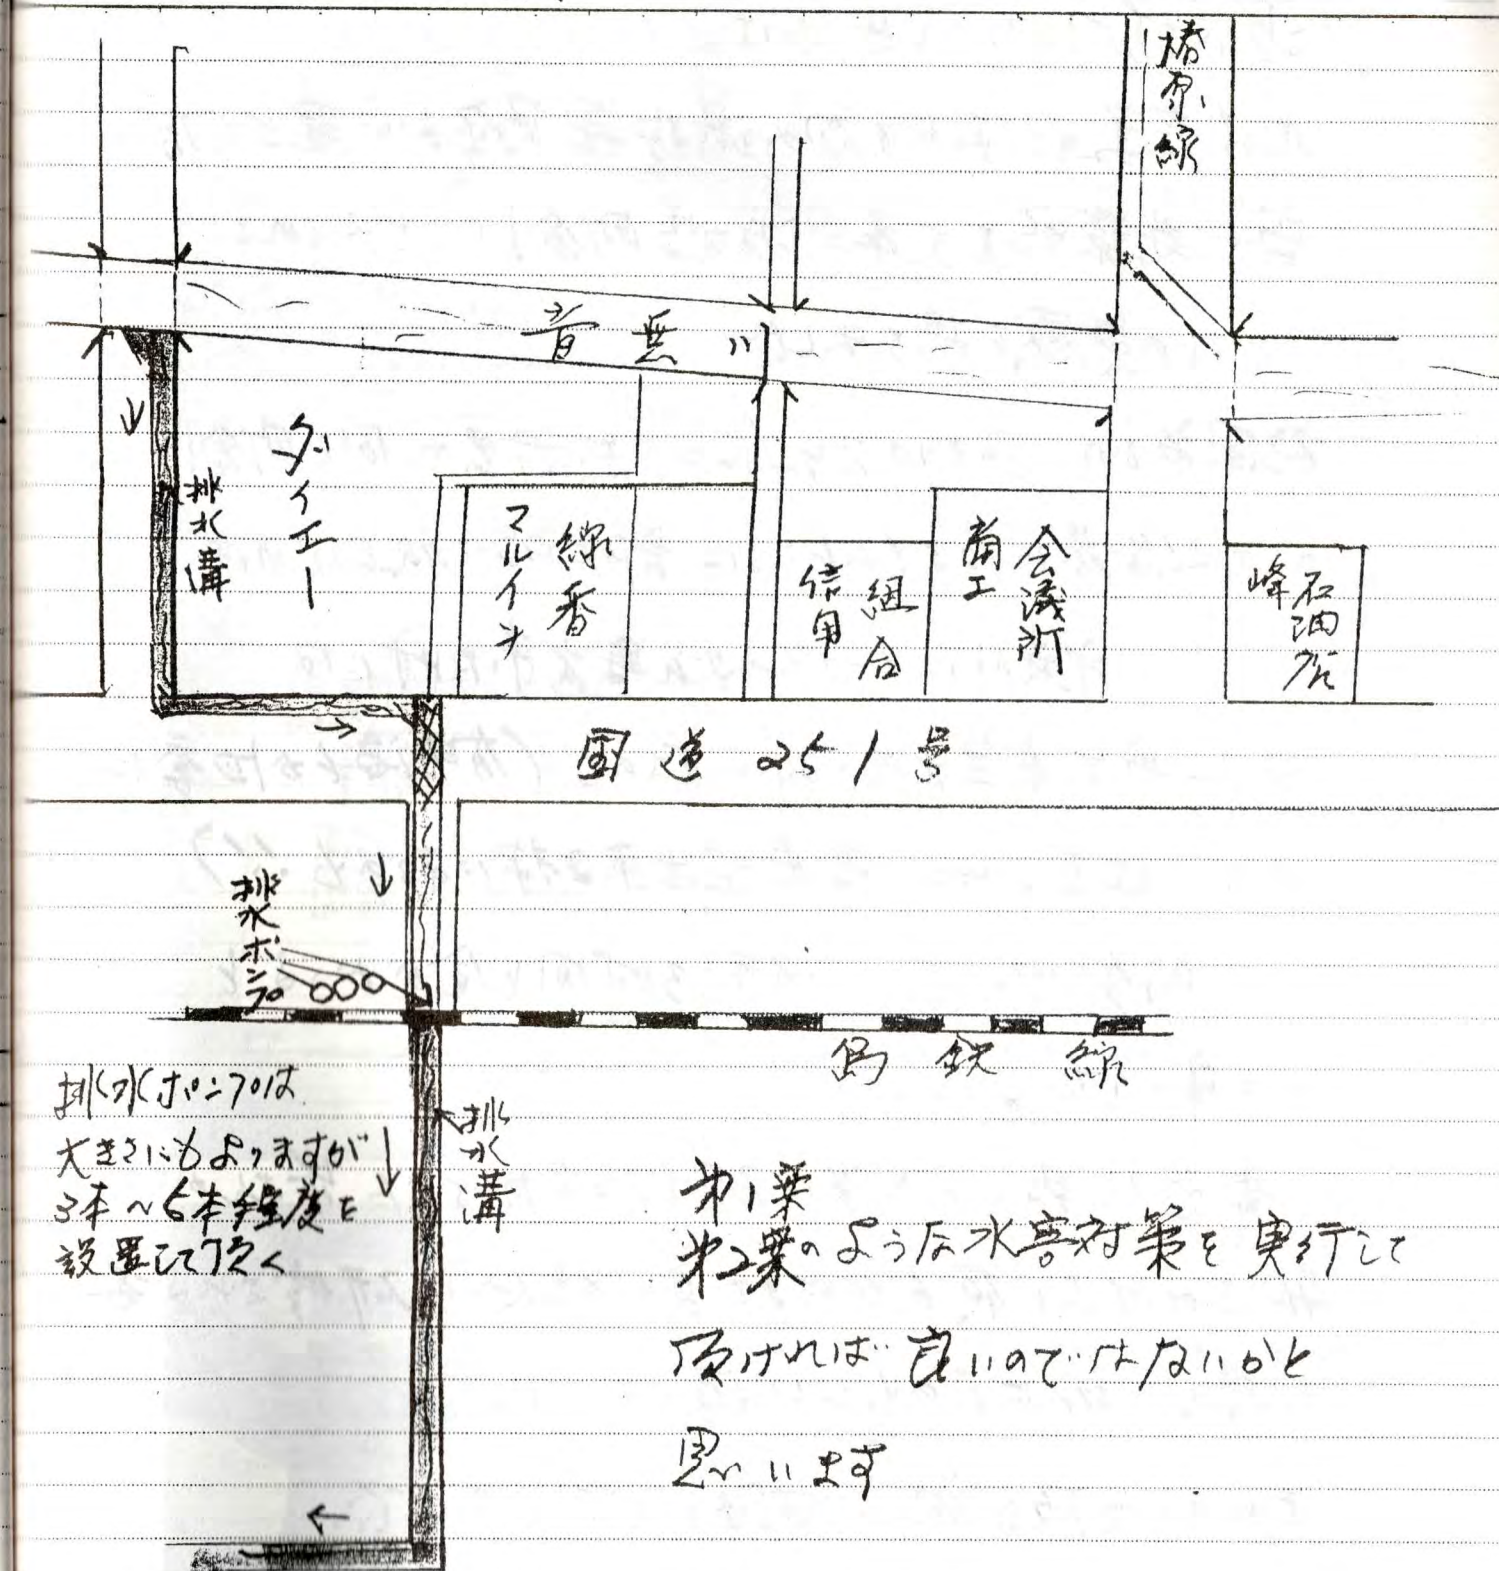 椿原線
音無川
ダイエー
排水溝
マルイチ
線香
信用
組合
商工
会議所
峰
石油店
国道251号
排水ポンプ
島鉄線
排水ポンプは
大きさにもよりますが
3本~5本程度を
設置して頂く
排水溝
第1案
第2案のような水害対策を実行して
頂ければ良いのではないかと
思います